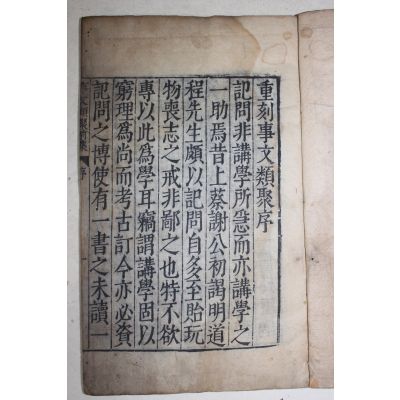 重刻事文類聚序
記問非講學所急而亦講學之
一助焉昔上蔡謝公初謁明道
程先生頗以記問自多至貽玩
物喪志之戒非鄙之也特不欲
專以此為學耳竊謂講學固以
窮理爲尚而考古訂今亦必資
記問之博使有一書之未讀一
事文類聚前集 序